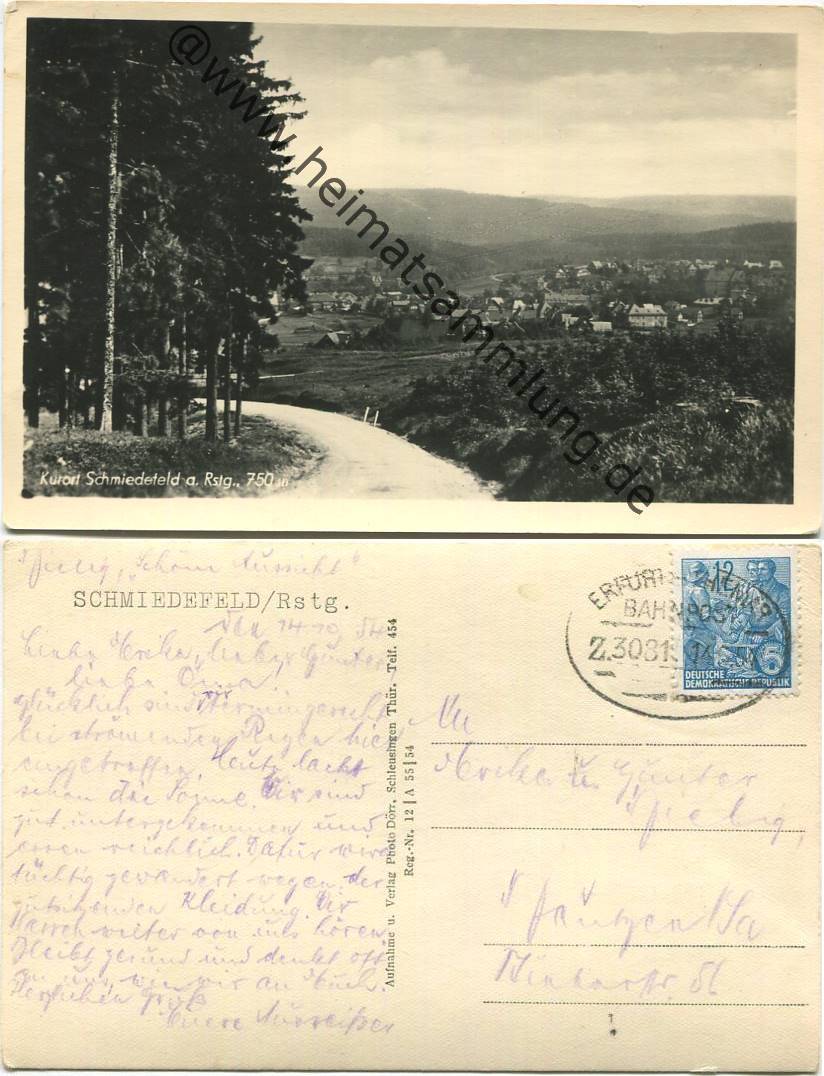 @www.heimatsammlung.de
Kurort Schmiedefeld a. Rstg., 750 m
"Schöne Aussicht"
SCHMIEDEFELD/Rstg.
Den 14.10.54
Liebe Erika, lieber Günter
liebe Oma!
glücklich sind wir
bei strömenden Regen hier
eingetroffen. Heute lacht
schon die Sonne. Wir sind
gut untergekommen und
essen reichlich. Dafür wird
tüchtig gewandert wegen der
Kleidung. Ihr
werdet weiter von uns hören
Bleibt gesund und denkt oft
an uns, wie wir an Euch.
Herzlichen Gruß
Eure Ausreißer
Aufnahme u. Verlag Photo Dörr, Schleusingen Thür. Telf. 454
Reg.-Nr. 12 | A 55 | 54
ERFURT
BAHNPOST
Z.3081
12
DEUTSCHE
DEMOKRATISCHE REPUBLIK
An
Erika u. Günter
Bautzen/Sa